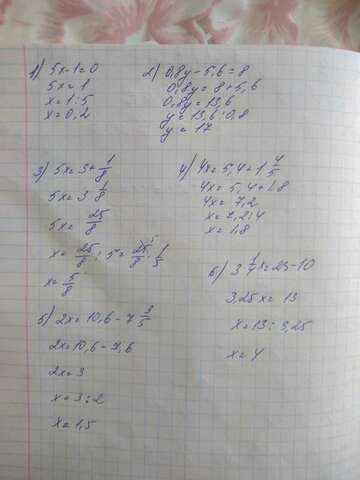 1) 5x-1=0
5x=1
x=1:5
x=0,2
2) 0,8y-5,6=8
0,8y=8+5,6
0,8y=13,6
y=13,6:0,8
y=17
3) 5x=3+1/8
5x=3 1/8
5x=25/8
x=25/8:5=25/8·1/5
x=5/8
4) 4x=5,4+1 4/5
4x=5,4+1,8
4x=7,2
x=7,2:4
x=1,8
5) 2x=10,6-7 3/5
2x=10,6-7,6
2x=3
x=3:2
x=1,5
6) 3 1/4x=23-10
3,25x=13
x=13:3,25
x=4